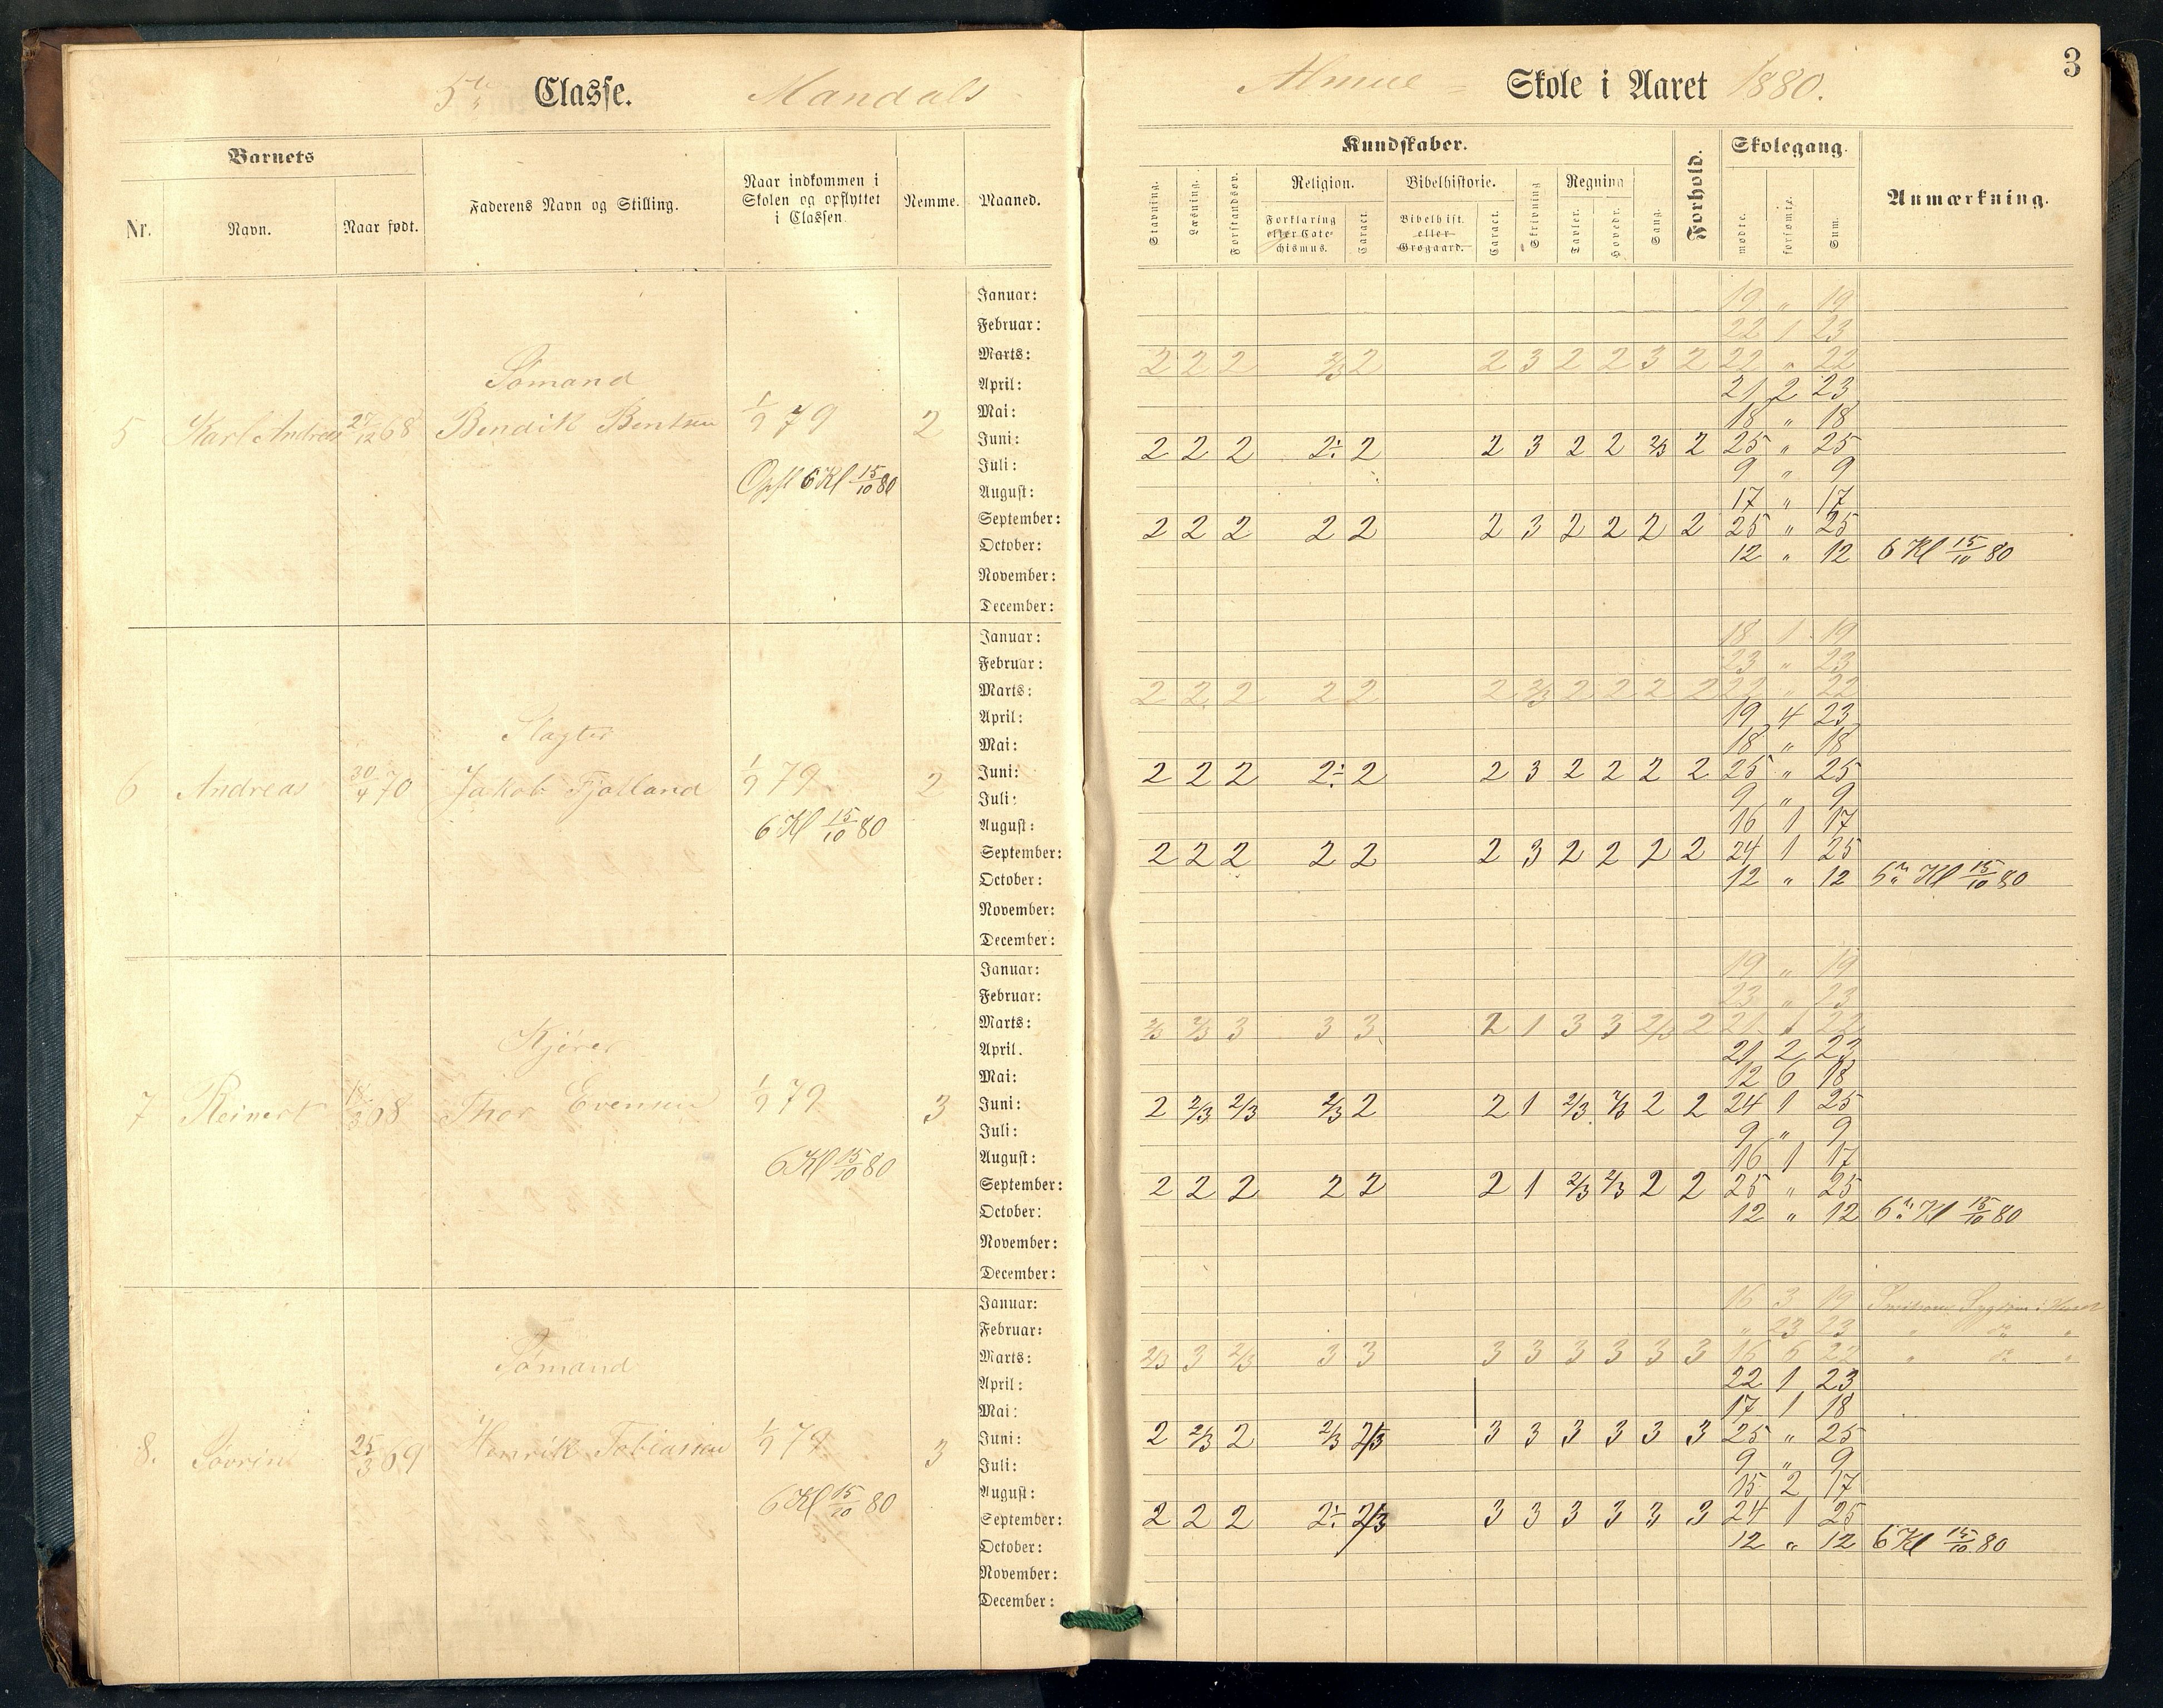 5te Classe. Mandals
Almue - Skole i Aaret 1880.
3
Barnets
Nr.
Navn.
Naar født.
Faderens Navn og Stilling.
Naar indkommen i Skolen og opflyttet i Classen.
Nemme.
Maaned.
Kundskaber.
Stavning.
Læsning.
Forstandsøv.
Religion.
Forklaring eller Catechismus.
Caract.
Bibelhistorie.
Bibelhist. eller Grogaard.
Caract.
Skrivning
Regning
Tavler.
Hovedr.
Sang.
Forhold.
Skolegang.
mødte.
forsømte.
Sum.
Anmærkning.
Sømand
5 Karl Andreas 68 Bendik Bentsen 1/9 79 2
Opfl 6 Kl 15/10 80
Januar: 19 " 19
Februar: 22 1 23
Marts: 2 2 2 2/3 2 2 3 2 2 3 2 22 " 22
April: 21 2 23
Mai: 18 " 18
Juni: 2 2 2 2÷ 2 2 3 2 2 2/3 2 25 " 25
Juli: 9 " 9
August: 17 " 17
September: 2 2 2 2 2 2 3 2 2 2 2 25 " 25
October: 12 " 12 6 Kl 15/10 80
November:
December:
Slagter
6 Andreas 30/4 70 Jakob Fjolland 1/9 79 2
6 Kl 15/10 80
Januar: 18 1 19
Februar: 23 " 23
Marts: 2 2 2 2 2 2 2/3 2 2 2 2 22 " 22
April: 19 4 23
Mai: 18 " 18
Juni: 2 2 2 2÷ 2 2 3 2 2 2 2 25 " 25
Juli: 9 " 9
August: 16 1 17
September: 2 2 2 2 2 2 3 2 2 2 2 24 1 25
October: 12 " 12 Kl 15/10 80
November:
December:
Kjører
7 Reinert 68 Thor Evensen 1/9 79 3
6 Kl 15/10 80
Januar: 19 " 19
Februar: 23 " 23
Marts: 2/3 2/3 3 3 3 2 1 3 3 2/3 2 21 1 22
April. 21 2 23
Mai: 12 6 18
Juni: 2 2/3 2/3 2/3 2 2 1 2/3 2/3 2 2 24 1 25
Juli: 9 " 9
August: 16 1 17
September: 2 2 2 2 2 2 1 2/3 2/3 2 2 25 " 25
October: 12 " 12 6 Kl 15/10 80
November:
December:
Sømand
8. Søvrin 25/3 69 Henrik Tobiassen 1/9 79 3
6 Kl 15/10 80
Januar: 16 3 19 Smitsom Sygdom i Huset
Februar: " 23 23 " do "
Marts: 2/3 3 2/3 3 3 3 3 3 3 3 3 22 " do "
April: 22 1 23
Mai: 17 1 18
Juni: 2 2/3 2 2/3 2/3 3 3 3 3 3 3 25 " 25
Juli: 9 " 9
August: 15 2 17
September: 2 2 2 2÷ 2/3 3 3 3 3 3 3 24 1 25
October: 12 " 12 6 Kl 15/10 80
November:
December: